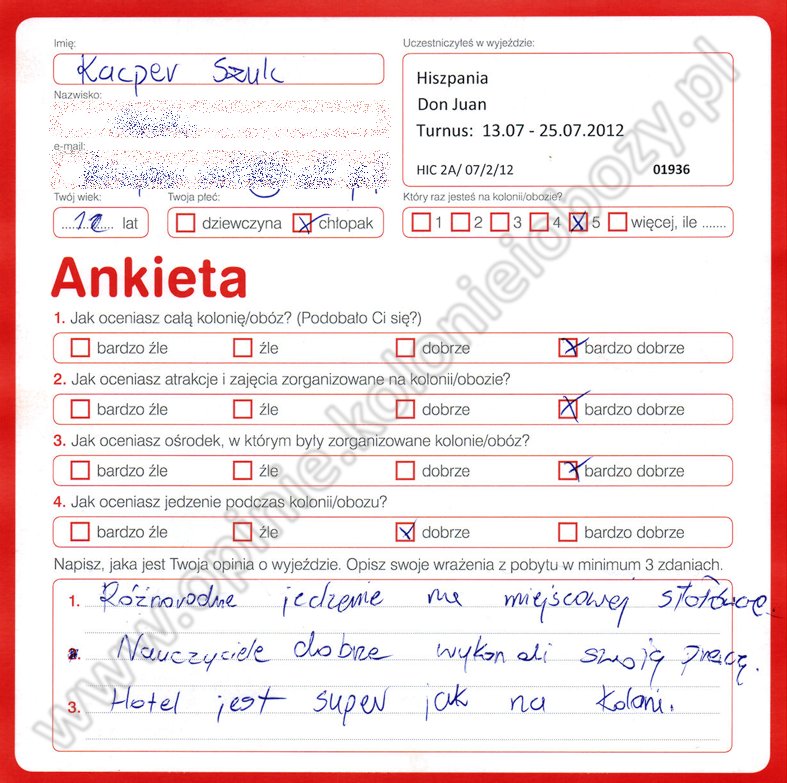 Imię:
Kacper Szulc
Uczestniczyłeś w wyjeździe:
Hiszpania
Don Juan
Turnus: 13.07 - 25.07.2012
HIC 2A/ 07/2/12 01936
Nazwisko:
e-mail:
Twój wiek:
12 lat
Twoja płeć:
dziewczyna chłopak
Który raz jesteś na kolonii/obozie?
1 2 3 4 5 więcej, ile .......
Ankieta
1. Jak oceniasz całą kolonię/obóz? (Podobało Ci się?)
bardzo źle źle dobrze bardzo dobrze
2. Jak oceniasz atrakcje i zajęcia zorganizowane na kolonii/obozie?
bardzo źle źle dobrze bardzo dobrze
3. Jak oceniasz ośrodek, w którym były zorganizowane kolonie/obóz?
bardzo źle źle dobrze bardzo dobrze
4. Jak oceniasz jedzenie podczas kolonii/obozu?
bardzo źle źle dobrze bardzo dobrze
Napisz, jaka jest Twoja opinia o wyjeździe. Opisz swoje wrażenia z pobytu w minimum 3 zdaniach.
1. Różnorodne jedzenie na miejscowej stołówce.
2. Nauczyciele dobrze wykonali swoją pracę.
3. Hotel jest super jak na koloni.
www.opinie.kolonieiobozy.pl